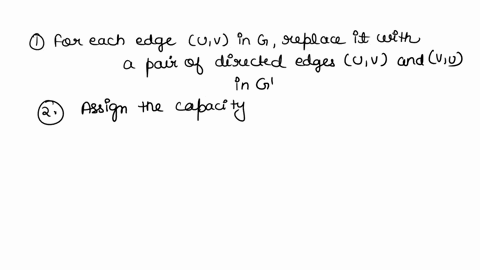 ① For each edge (u,v) in G, replace it with
a pair of directed edges (u,v) and (v,u)
in G'
②. Assign the capacity